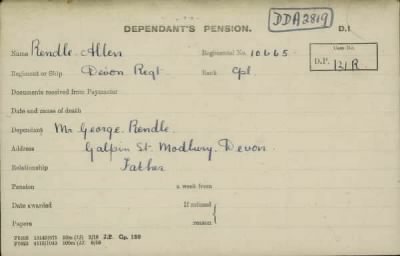 DDA2819
DEPENDANT'S PENSION. D.1
Name Rendle. Allen Regimental No. 10665
Case No.
D.P. 131R
Regiment or Ship Devon Regt Rank Cpl
Documents received from Paymaster
Date and cause of death
Dependant Mr George. Rendle.
Address Galpin St. Modbury. Devon.
Relationship Father
Pension a week from
Date awarded If refused
Papers reason
J.P. Gp. 150